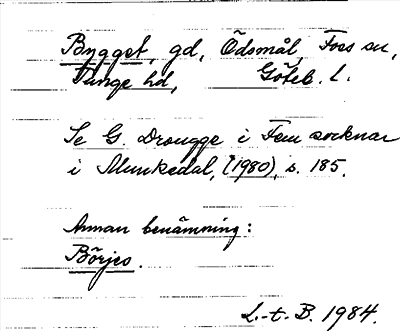 Bygget, gd, Ödsmål, Foss sn,
Tunge hd, Göteb. l.
Se G. Drougge i Fem socknar
i Munkedal, (1980), s. 185.
Annan benämning:
Börjes.
L.-t. B. 1984.